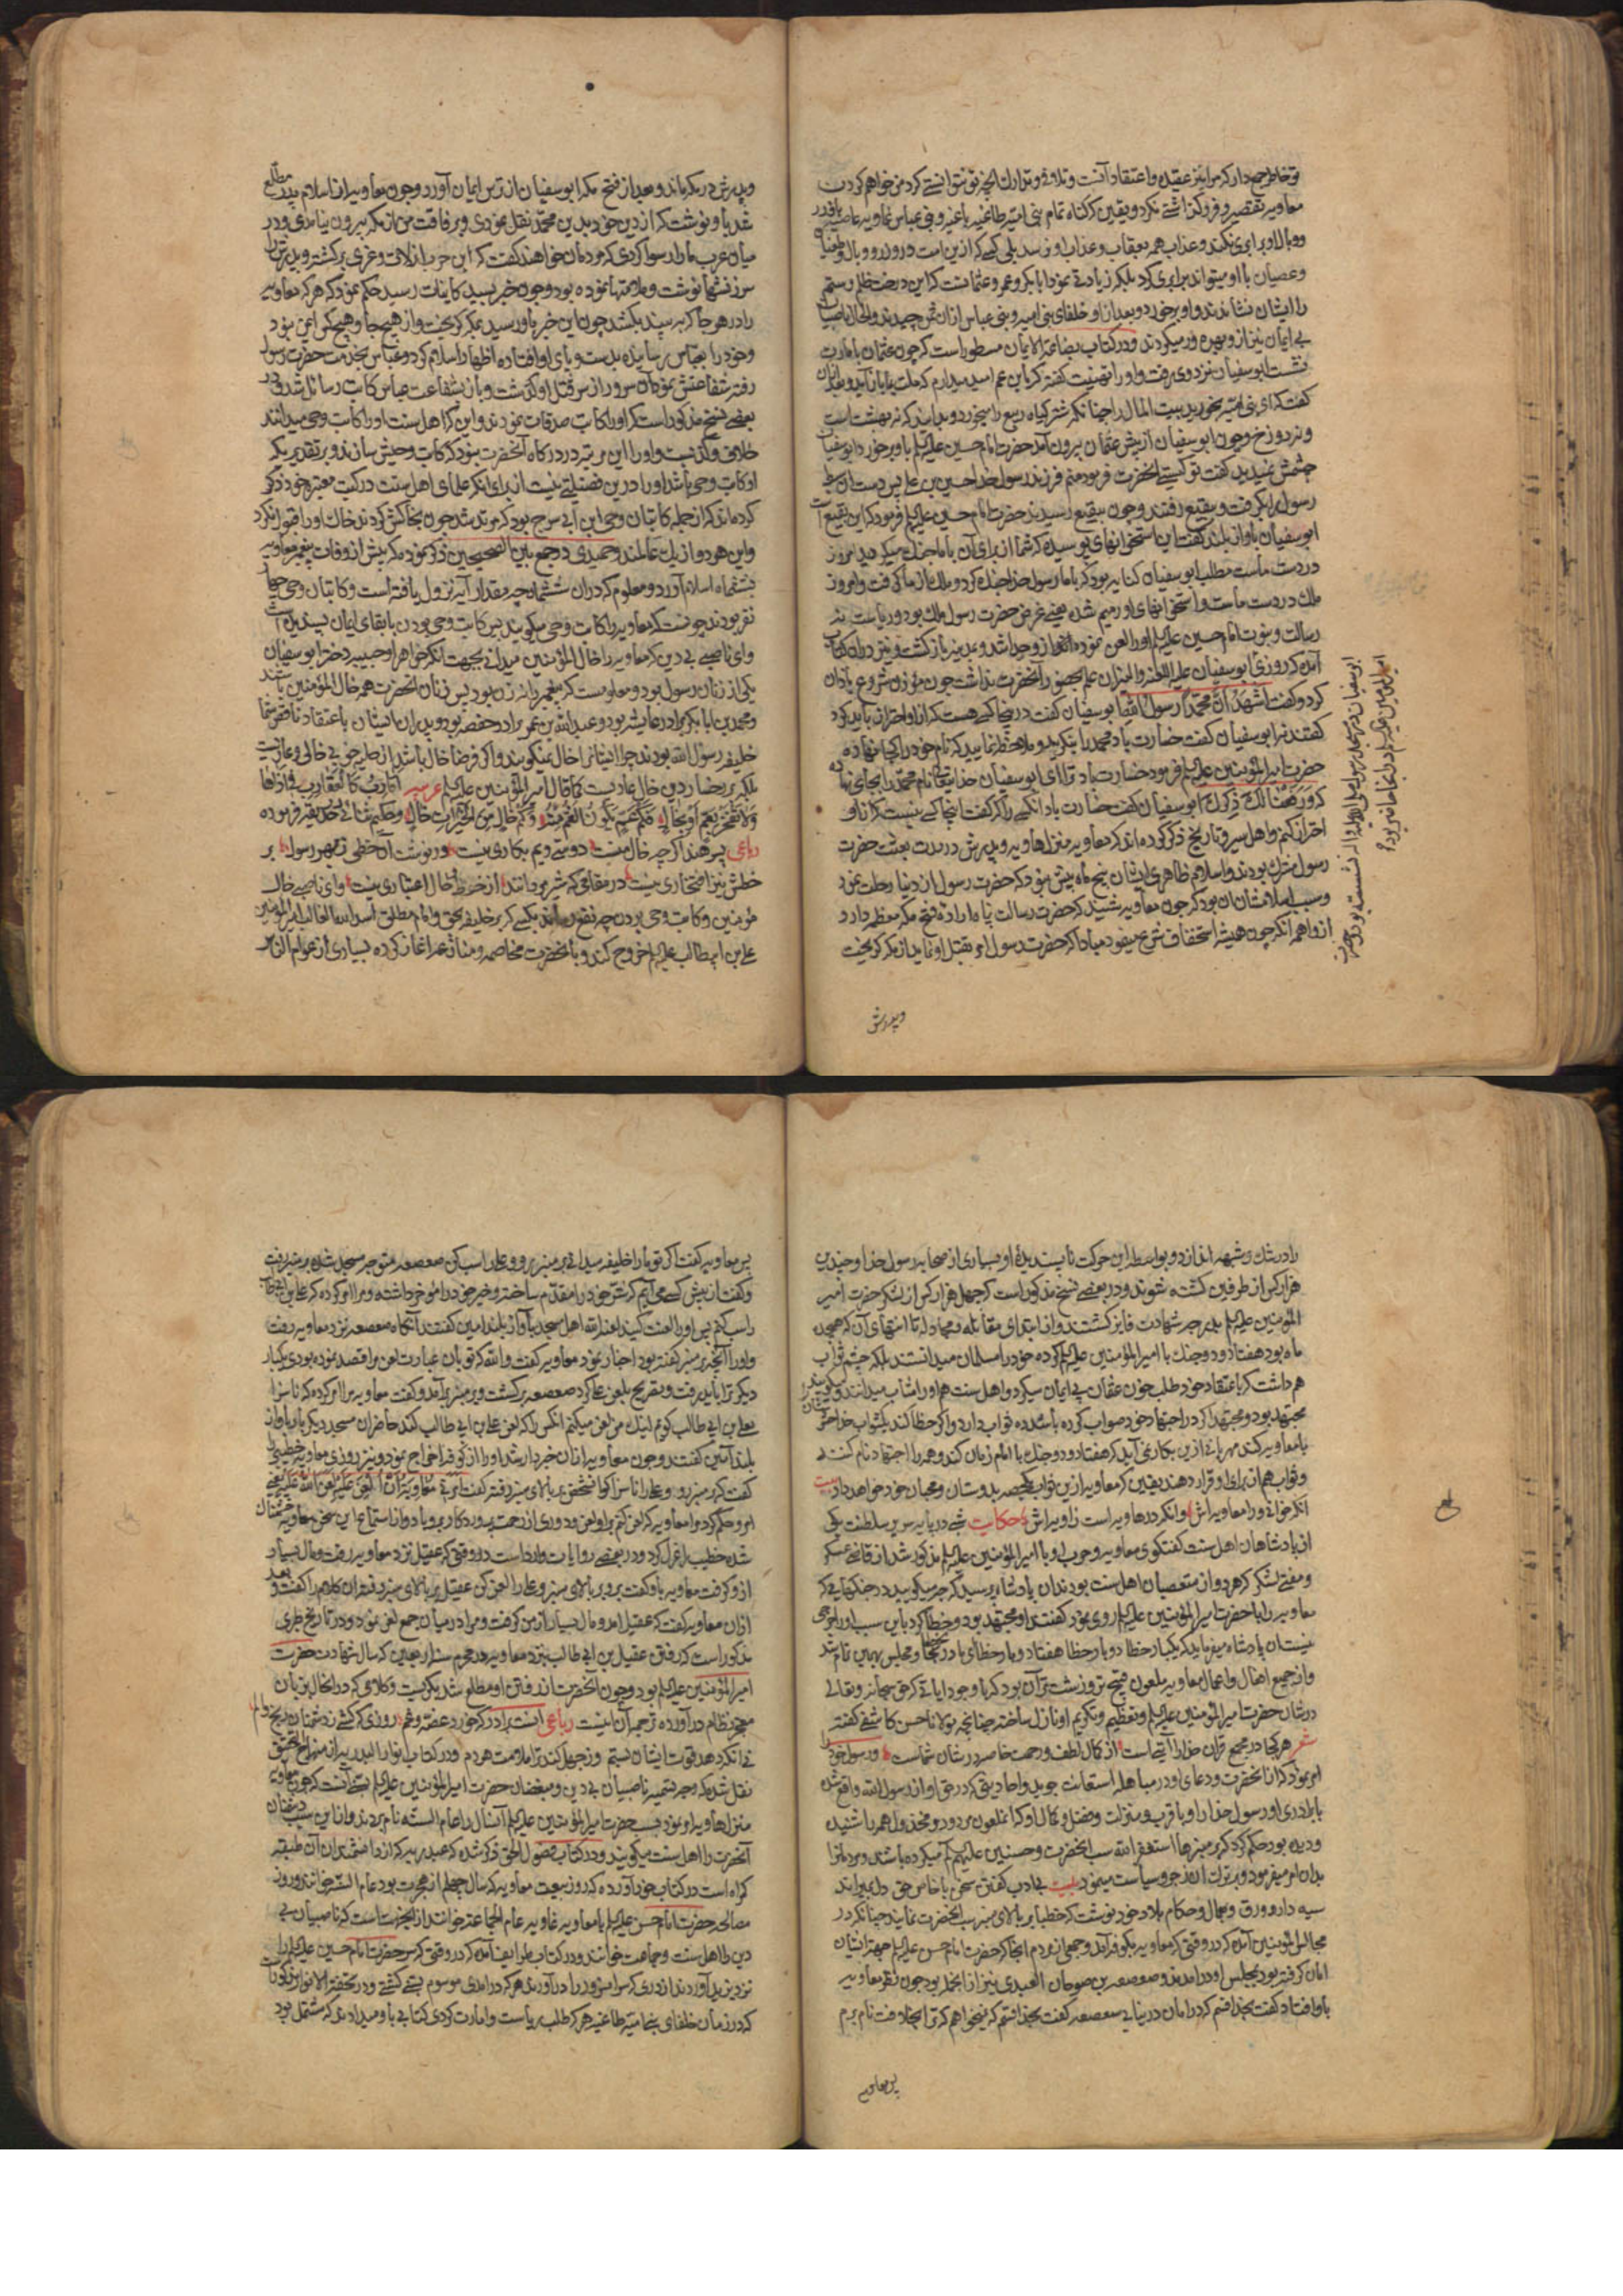 تو خاطر جمع دار که مرا نیز عقیده و اعتقاد آنست و تلافی و تدارک آنچه تو نتوانستی کرد من خواهم کرد
معاویه تقصیر و فروگذاشتی نکرد و یقین که گناه تمام بنی امیه طاغیه باغیه و بنی عباس بمعاویه عاصیه
و وبال او برابری نکند و عذاب همه بعقاب و عذاب او نرسد بلی کسی که ازین امت در وزر و وبال و طغیان
و عصیان با او میتواند برابری کرد بلکه زیادتی نمود ابابکر و عمر و عثمانست که این درخت ظلم و ستم
را ایشان نشاندند و او بر خورد و بعد از او خلفای بنی امیه و بنی عباس از ان ثمر چیدند و الحال ناصبیان
بی ایمان نیز از و بهره ور میگردند و در کتاب بضاعة الایمان مسطور است که چون عثمان بامارت
نشست ابوسفیان نزد وی رفت و او را تهنیت گفته که یا بن عم امید میدارم که ملت ما باز آید
گفت که ای بنی امیه بخورید بیت المال را چنانکه شتر گیاه ربیع را میخورد و بدانید که نه بهشت است
و نه دوزخ و چون ابوسفیان از پیش عثمان بیرون آمد حضرت امام حسین علیه السلام باو بر خورد و ابوسفیان
چشمش نمیدید گفت تو کیستی آنحضرت فرمود منم فرزند رسول خدا حسین بن علی پس دست ان سبط
رسول را بگرفت و ببقیع رفتند و چون ببقیع رسیدند حضرت امام حسین علیه السلام فرمود که این بقیع است
ابوسفیان بآواز بلند گفت این استخوانهای پوسیده که شما از برای آن با ما جنک میکردید امروز
در دست ماست مطلب ابوسفیان کنایه بود که با ما رسول خدا جنک کرد و ملک از ما گرفت و امروز
ملک در دست ماست و استخوانهای او رمیم شده یعنی غرض حضرت رسول ملک بود و ریاست نه
رسالت و نبوت امام حسین علیه السلام او را لعن نموده از و جدا شد و بمدینه بازگشت و نیز در ان کتاب
آمده که روزی ابوسفیان علیه اللعنة و النیران علم بحضور آنحضرت نداشت چون مؤذن شروع باذان
کرد و گفت اشهد ان محمدا رسول الله ابوسفیان گفت در اینجا کسی هست که از او احتراز باید کرد
گفتند نه ابوسفیان گفت خدارت باد محمد را بنگرید و ملاحظه نمایید که نام خود را کجا نهاده
حضرت امیر المؤمنین علیه السلام فرمود ای ابوسفیان خدایتعالی نام محمد را بجای نهاده
که و رفعنا لک ذکرک ابوسفیان گفت خدارت باد انکسی را که گفت اینجا کسی نیست که از او
احتراز کنم و اهل سیر و تاریخ ذکر کرده اند که معاویه منزلها ویه و پدرش در مدت بعثت حضرت
رسول مشرک بودند و اسلام ظاهری ایشان پنج ماه پیش نبود که حضرت رسول از دنیا رحلت نمود
و سبب اسلامشان ان بود که چون معاویه شنید که حضرت رسالت پناه اراده فتح مکه معظمه دارد
از واهمه انکه چون همیشه استخفاف شرع مینمود مبادا که حضرت رسول امر بقتل او نماید از مکه گریخت
ابوسفیان در مسجد رسول صلی الله علیه و اله نشسته بود و حضرت
امیر المؤمنین علیه السلام در آنجا حاضر بود
و پدرش
و پدرش در مکه ماند و بعد از فتح مکه ابوسفیان از ترس ایمان آورد و چون معاویه از اسلام پدر مطلع
شد باو نوشت که از دین خود بدین محمد نقل نمودی و برفاقت من از مکه بیرون نیامدی و در
میان عرب ما را رسوا کردی که مردمان خواهند گفت که ابن حرب از لات و عزی برگشته و پدر را
سرزنشها نوشت و ملامتها نموده بود و چون خبر بسید کاینات رسید حکم نمود که هر که معاویه
را در هر جا که ببیند بکشد چون این خبر باو رسید بمکه گریخت و از هیچ جا و هیچ کس ایمن نبود
و خود را بعباس رسانیده بدست و پای او افتاده اظهار اسلام کرد و عباس بخدمت حضرت رسول
رفته شفاعتش نمود آن سرور از سر قتل او گذشت و باز بشفاعت عباس کاتب رسائل شد و در
بعضی نسخ مذکور است که او را کاتب صدقات نمودند و این که اهل سنت او را کاتب وحی میدانند
خلاف و کذبست و او را این مرتبه در درگاه آنحضرت نبود که کاتب وحیش سازند و بر تقدیر یکه
او کاتب وحی باشد او را درین فضیلتی نیست از برای انکه علمای اهل سنت در کتب معتبره خود ذکر
کرده اند که از جمله کاتبان وحی ابن ابی سرح بود که مرتد شد چون بخاکش کردند خاک او را قبول نکرد
و این هر دو از یک عالمند و حمیدی در جمع بین الصحیحین ذکر نموده که پیش از وفات پیغمبر معاویه
بششماه اسلام آورد و معلوم که در ان ششماه چه مقدار آیه نزول یافته است و کاتبان وحی چهارده
نفر بودند چونست که معاویه را کاتب وحی میگویند پس کاتب وحی بودن با بقای ایمان پسندیده است
و ای ناصبی بی دین که معاویه را خال المؤمنین میدانی بجهت آنکه خواهر او حبیبه دختر ابوسفیان
یکی از زنان رسول بود و معلومست که پیغمبر را نه زن بود پس برادران زنان آنحضرت همه خال المؤمنین باشند
و محمد بن ابابکر برادر عایشه بود و عبد الله بن عمر برادر حفصه بود و پدران ایشان باعتقاد ناقص شما
خلیفه رسول الله بودند چرا اینانرا خال نمیگویند و اگر فرضا خال باشد از حلیه خوبی خالی و عاریست
بلکه بر رخسار دین خال عاریست کما قال امیر المؤمنین علیه السلام عربیه اقارب کالعقارب فی اذاها
ولا تفخر بعم او بخال فکم عم یکون الغم منه و کم خال من الخیرات خال و حکیم سنائی در حدیقه فرموده
رباعی پسر هند اگر چه خال منست دوستی ویم بکاری نیست ور نوشت آن خطی ز بهر رسول بر
خطش نیز افتخاری نیست در مقامی که شیر مردانند از خط و خال اعتباری نیست و ای ناصبی خال
مؤمنین و کاتب وحی بودن چه نفع رساند بکسی که بر خلیفه بحق و امام مطلق اسد الله الغالب امیر المؤمنین
علی بن ابیطالب علیه السلام خروج کند و با آنحضرت مخاصمه و منازعه اغاز کرده بسیاری از عوام الناس
را در شک و شبهه اندازد و بواسطه این حرکت ناپسندیده او بسیاری از صحابه رسول خدا و چندین
هزار کس از طرفین کشته شوند و در بعضی نسخ مذکور است که چهل هزار کس از لشکر حضرت امیر
المؤمنین علیه السلام بدرجه شهادت فایز گشتند و از ابتدای مقاتله و مجادله تا انتهای آن که هجده
ماه بود هفتاد و دو جنک با امیر المؤمنین علیه السلام کرده خود را مسلمان میدانستند بلکه چشم ثواب
هم داشت که باعتقاد خود طلب خون عثمان بی ایمان میکرد و اهل سنت هم او را مثاب میدانند و میگویند
مجتهد بود و مجتهد اگر در اجتهاد خود صواب کرده باشد ده ثواب دارد و اگر خطا کند یکثواب
با معاویه کند مهربانی ازین بکار نمی آید که هفتاد و دو جنک با امام زمان کند و همه را اجتهاد نام کنند
و ثواب هم از برای او قرار دهند یقین که معاویه ازین ثواب یکحصه بدوستان و محبان خود خواهد داد بیت
آنکه خوانی ورا معاویه اش وانکه در هاویه است زاویه اش حکایت شبی در پایه سریر سلطنت یکی
از پادشاهان اهل سنت گفتگوی معاویه و حرب او با امیر المؤمنین علیه السلام مذکور شد از قاضی عسکر
و مفتی لشکر که هر دو از متعصبان اهل سنت بودند آن پادشاه پرسید که چه میگویید در جنکهایی که
معاویه را با حضرت امیر المؤمنین علیه السلام روی نمود گفتند او مجتهد بود و خطا کرد باین سبب او را حرجی
نیست آن پادشاه میفرماید که یکبار خطا دو بار خطا هفتاد و دو بار خطا و مجلس بهمین تمام شد
و از جمیع افعال و اعمال معاویه ملعون قبیح تر و زشت تر آن بود که با وجود آیاتی که حق سبحانه و تعالی
در شان حضرت امیر المؤمنین علیه السلام و تعظیم و تکریم او نازل ساخته چنانچه مولانا حسن کاشی گفته
شعر هر کجا در مجمع قرآن خدا را آیتی است از کمال لطف و رحمت خاصه در شان شماست و رسول خود را
امر نمود که از آنحضرت و دعای او در مباهله استعانت جوید و احادیثی که در حق او از رسول الله واقع شد
با برادری او رسول خدا را و با قرب و منزلت و فضل و کمال او که آنملعون مردود و مخذول همه را شنید
و دیده بود حکم کرد که بر منبرها استغفر الله سب آنحضرت و حسنین علیهم السلام میکرده باشند و مردمانرا
بدان امر میفرمود و بر ترک آن زجر و سیاست مینمود بیت بی ادب گفتن سخن با خاص حق دل بمیراند
سیه دارد ورق و بعمال و حکام بلاد خود نوشت که خطبا بر بالای منبر سب آنحضرت نمایند چنانکه در
مجالس المؤمنین آمده که در وقتی که معاویه بکوفه آمد و جمعی از مردم آنجا که حضرت امام حسن علیه السلام جهة ایشان
امان گرفته بود بمجلس او در آمدند و صعصعه بن صوحان العبدی نیز از آنجمله بود چون نظر معاویه
باو افتاد گفت بخدا قسم که در امان در نیایی صعصعه گفت بخدا قسم که نمیخواهم که ترا بخلافت نام برم
پس معاویه
پس معاویه گفت اگر تو ما را خلیفه میدانی بر منبر رو و علی را سب کن صعصعه متوجه مسجد شده بر منبر رفت
و گفت از پیش کسی می آیم که شر خود را مقدم ساخته و خیر خود را مؤخر داشته و مرا امر کرده که علی بن ابی طالب
را سب کنم پس او را لعنت کنید لعنه الله اهل مسجد بآواز بلند امین گفتند آنگاه صعصعه نزد معاویه رفت
و او را آنچه بر منبر گفته بود اخبار نمود معاویه گفت والله که تو بان عبارت لعن مرا قصد نموده بودی یکبار
دیگر ترا باید رفت و بتصریح بلعن علی کرد صعصعه برگشت و بر منبر بر آمد و گفت معاویه مرا امر کرده که ناسزا
بعلی بن ابی طالب گویم اینک من لعن میکنم انکس را که لعن علی بن ابی طالب کند حاضران مسجد دیگر بار بآواز
بلند آمین گفتند و چون معاویه از ان خبردار شد او را از کوفه اخراج نمود و نیز روزی معاویه خطیبی را
گفت که بر منبر رو و علی را ناسزا گو انشخص بر بالای منبر رفته گفت امرنی معاویة ان العن علیا لعن الله علیه یعنی
امر و حکم کرد مرا معاویه که لعن کنم بر او لعن و دوری از رحمت پروردگار برو باد و از استماع این سخن معاویه خشمناک
شده خطیب را عزل کرد و در بعضی روایات وارد است در وقتی که عقیل نزد معاویه رفت و مال بسیار
ازو گرفت معاویه باو گفت برو بر بالای منبر و علی را لعن کن عقیل بر بالای منبر رفته ان کلام را گفت و بعد
از ان معاویه گفت که عقیل امد و مال بسیار از من گرفت و مرا در میان جمع لعن نمود و در تاریخ طبری
مذکور است که رفتن عقیل بن ابی طالب بنزد معاویه در محرم سنه اربعین که سال شهادت حضرت
امیر المؤمنین علیه السلام بود و چون آنحضرت از رفتن او مطلع شد بگریست و کلامی که در انحال بزبان
معجز نظام در آورده ترجمه آن اینست رباعی
نقل شده که وجه تسمیه ناصبیان بی دین و مبغضان حضرت امیر المؤمنین علیه السلام بسنی آنست که چون معاویه
منزلها ویه امر نمود بسب حضرت امیر المؤمنین علیه السلام آنسال را عام السنه نام بردند و از این سبب دشمنان
آنحضرت را اهل سنت میگویند و در کتاب فصول الحق ذکر شده که
گمراه است در کتاب خود آورده که روز بیعت معاویه که سال چهلم از هجرت بود عام السنه خوانند و روز
مصالحه حضرت امام حسن علیه السلام با معاویه غاویه عام الجماعة خوانند از اینجهت است که ناصبیان بی
دین را اهل سنت و جماعت خوانند و در کتاب طرایف آمده که در وقتی که سر حضرت امام حسین علیه السلام را
نزد یزید آوردند از دری که سر امیر را در آوردند هر که در آمدی موسوم بسنی گشتی و در تحفة الابرار مذکور است
که در زمان خلفای بنی امیه طاغیه هر که طلب ریاست و امارت کردی کتابی باو میدادند که مشتمل بود